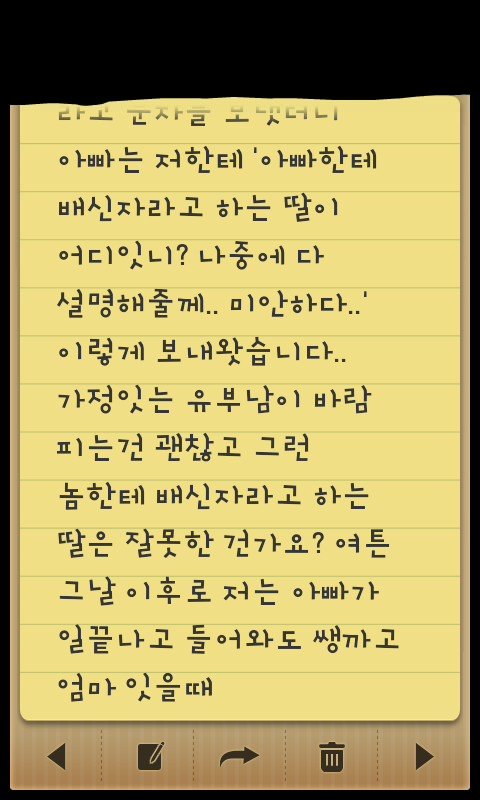 라고 문자를 보냇더니
아빠는 저한테 '아빠한테
배신자라고 하는 딸이
어디잇니? 나중에 다
설명해줄께.. 미안하다..'
이렇게 보내왓습니다..
가정잇는 유부남이 바람
피는건 괜찮고 그런
놈한테 배신자라고 하는
딸은 잘못한 건가요? 여튼
그날 이후로 저는 아빠가
일끝나고 들어와도 쌩까고
엄마 잇을때